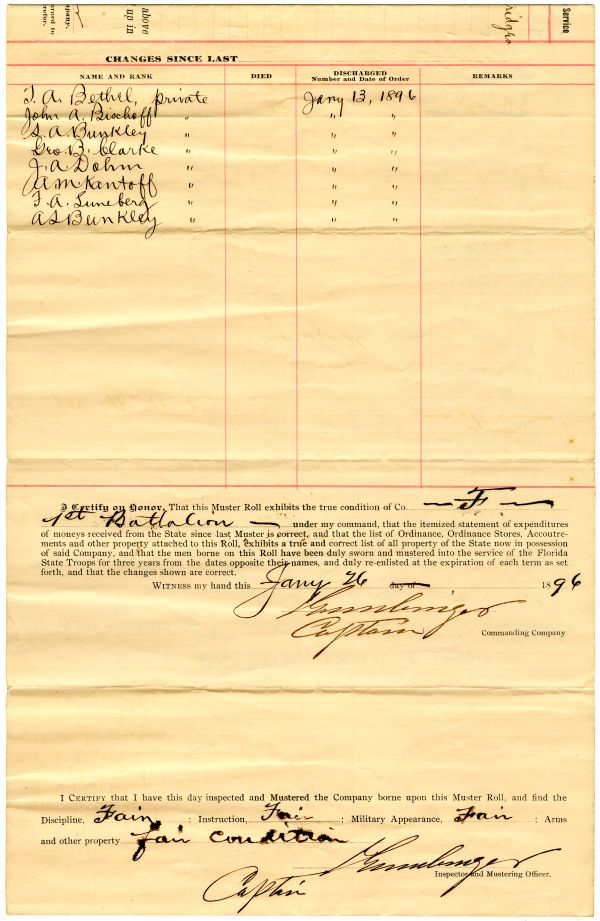 above
up in
Service
CHANGES SINCE LAST
NAME AND RANK DIED DISCHARGED Number and Date of Order REMARKS
T. A. Bethel, private Jany 13, 1896
John A. Bischoff " " "
S. A. Bunkley " " "
Geo. B. Clarke " " "
J. A. Dohm " " "
A M Kantoff " " "
F. A. Luneberg " " "
A S Bunkley " " "
I Certify on Honor, That this Muster Roll exhibits the true condition of Co. F
1st Battalion under my command, that the itemized statement of expenditures
of moneys received from the State since last Muster is correct, and that the list of Ordinance, Ordinance Stores, Accoutre-
ments and other property attached to this Roll, exhibits a true and correct list of all property of the State now in possession
of said Company, and that the men borne on this Roll have been duly sworn and mustered into the service of the Florida
State Troops for three years from the dates opposite their names, and duly re-enlisted at the expiration of each term as set
forth, and that the changes shown are correct.
WITNESS my hand this Jany 26 day of 1896
Captain Commanding Company
I CERTIFY that I have this day inspected and Mustered the Company borne upon this Muster Roll, and find the
Discipline, Fair ; Instruction, Fair ; Military Appearance, Fair ; Arms
and other property fair condition
Inspector and Mustering Officer.
Captain